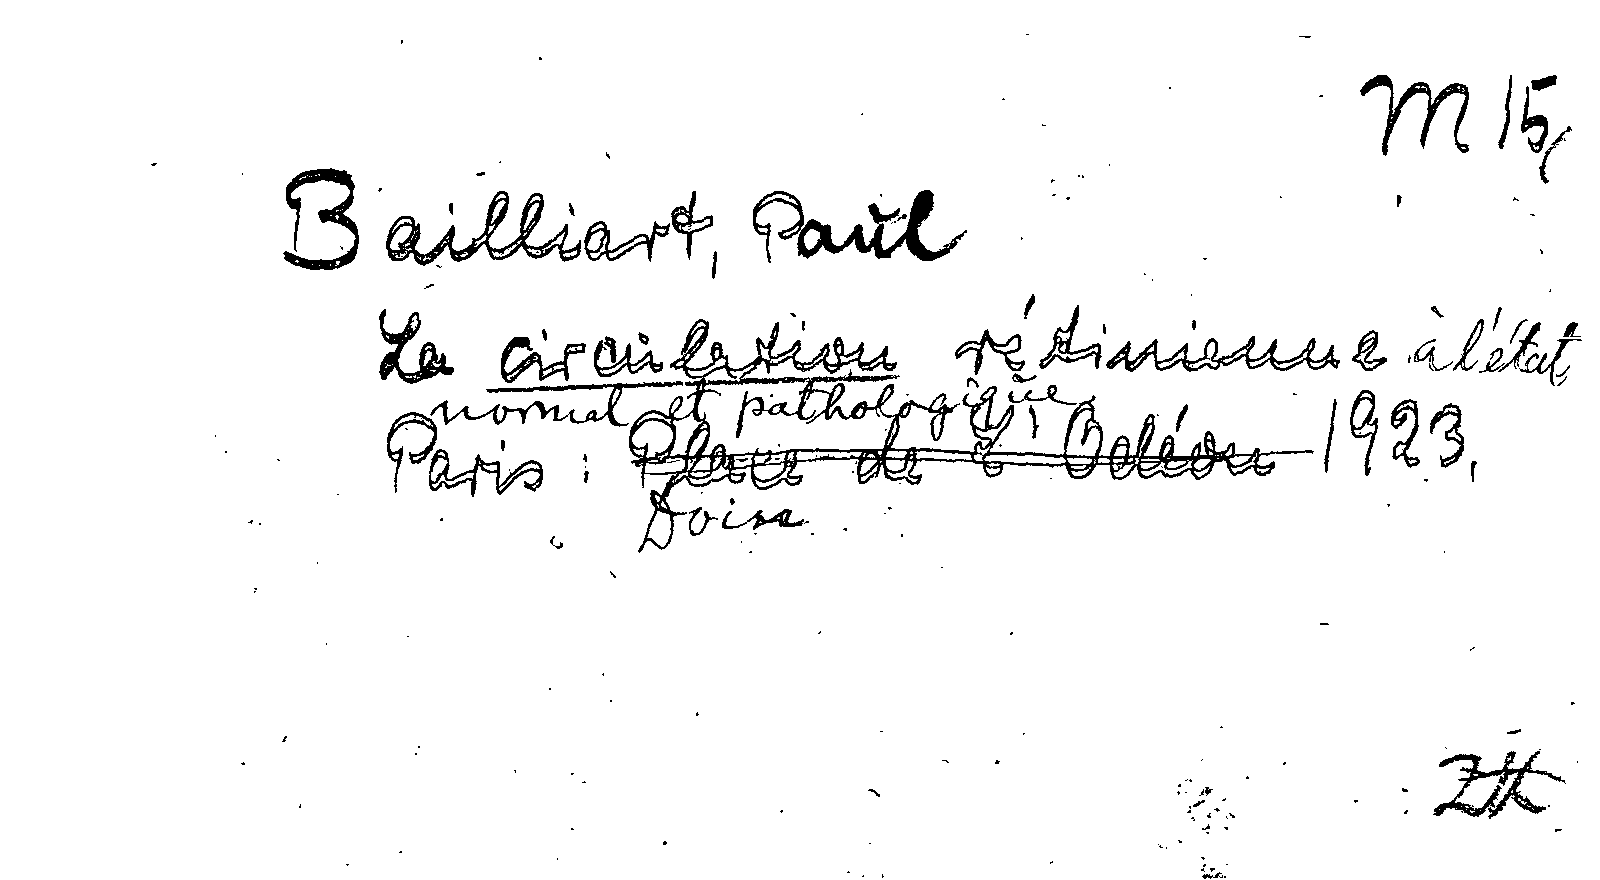 M 15,
Bailliart, Paul
La circulation rétinienne à l'état
normal et pathologique.
Paris : Place de l'Odéon 1923.
Doin